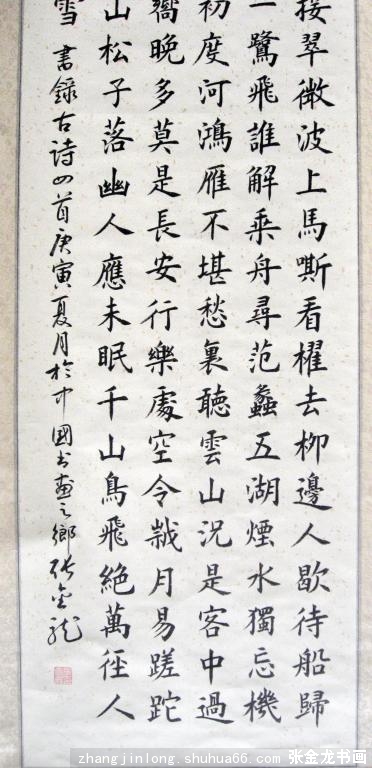 接翠微波上馬嘶看櫂去柳邊人歇待船歸
一鷺飛誰解乘舟尋范蠡五湖煙水獨忘機
初度河鴻雁不堪愁裏聽雲山況是客中過
嚮晚多莫是長安行樂處空令歲月易蹉跎
山松子落幽人應未眠千山鳥飛絕萬徑人
雪 書錄古詩四首庚寅夏月於中國书畫之鄉張金龍
zhangjinlong.shuhua66.com 张金龙书画